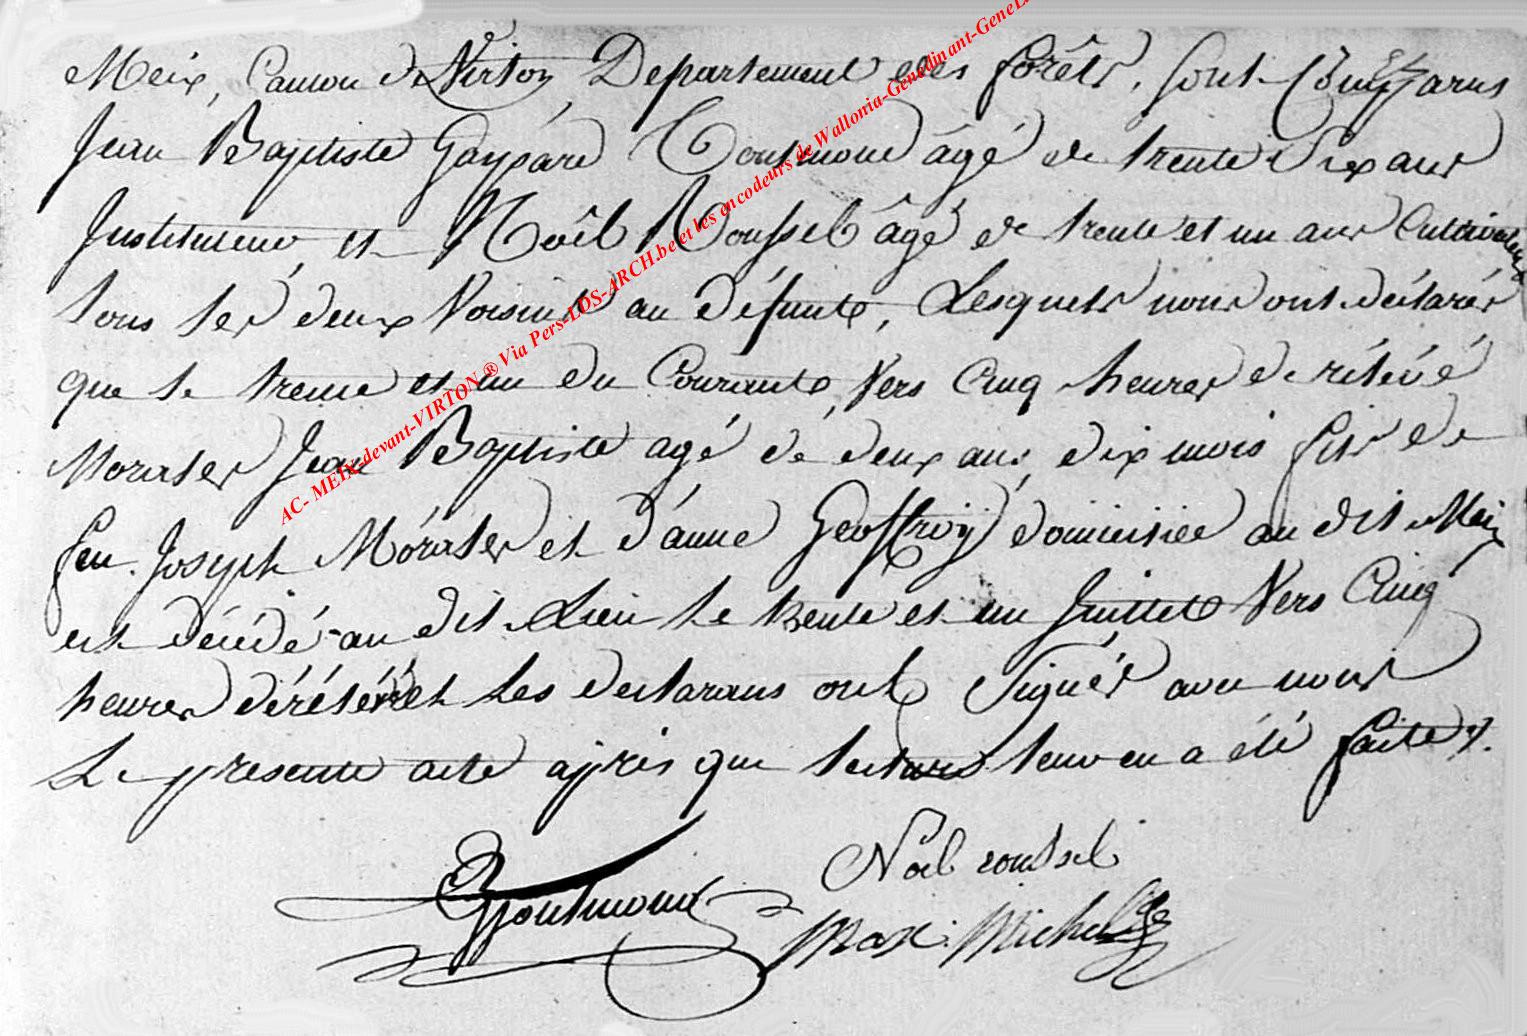 Meix, Canton de Virton Departement des forêts, sont Comparus
Jean Baptiste Gaspard Toussmond âgé de trente Six ans
Instituteur et Noêl Roussel âgé de trente et un ans Cultivateur
tous les deux Voisins au défunt, Lesquels nous ont déclarés
que le trente et un du Courant, Vers Cinq heures de rélévé
Morasle Jean Baptiste agé de deux ans dix mois fils de
feu Joseph Moraslet et d'anne Geoffroÿ domiciliée au dit Meix
est décédé au dit Lieu Le trente et un Juillet Vers Cinq
heures dérélévé et Les declarans ont Signés avec nous
Le presente acte apres que lecture leur en a été faite.
Noel roussel
Max. Michel
AC- MEIX-devant-VIRTON ® Via Pers-LDS-ARCH.be et les encodeurs de Wallonia-Genedinant-GeneL